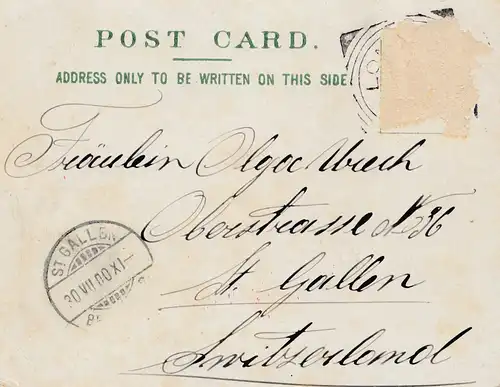 POST CARD.
ADDRESS ONLY TO BE WRITTEN ON THIS SIDE
LON
Fräulein Olga
Oberstrasse No 36
St. Gallen
Switzerland
ST GALLEN
30 VII 00 XI-